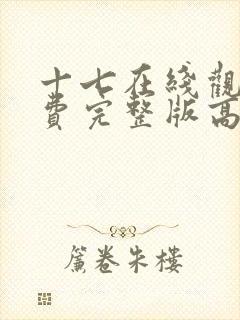 十七在线觀
費完整版高
簾卷朱樓